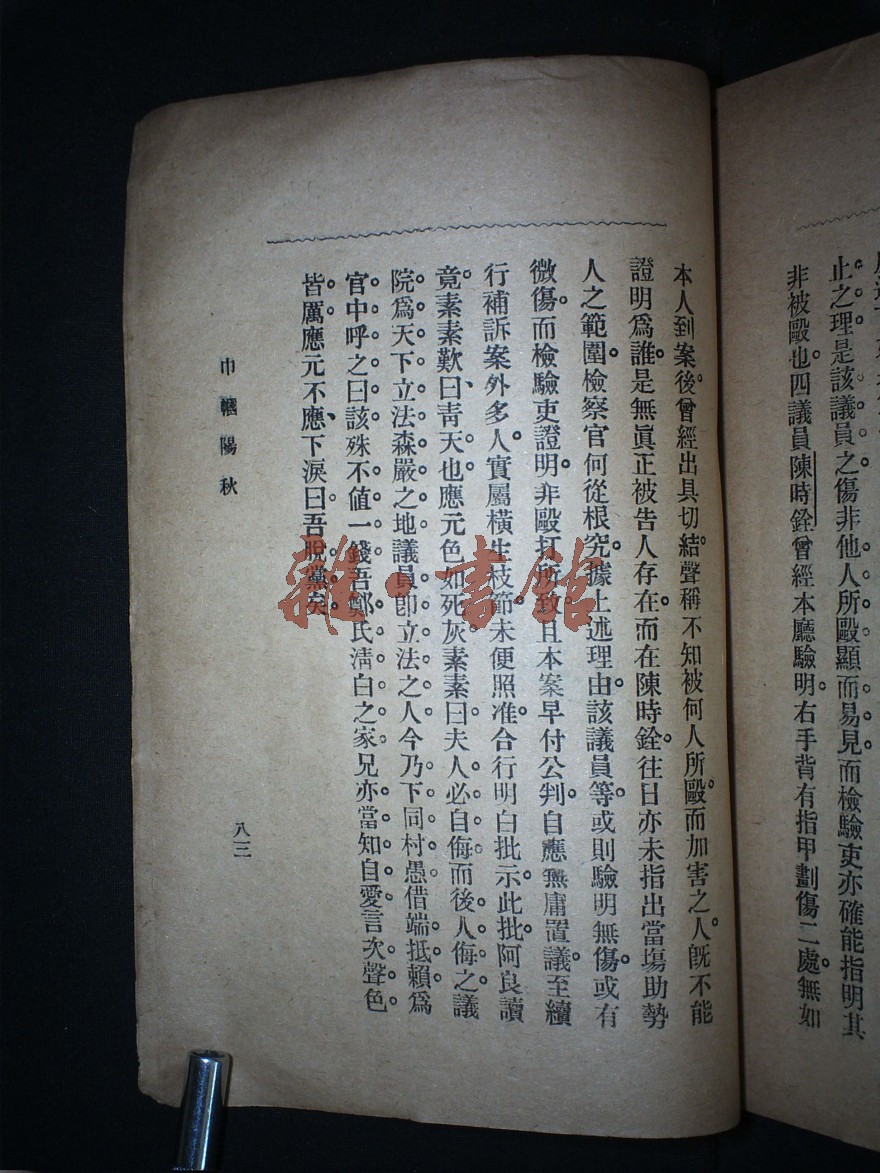 止之理是該議員之傷非他人所毆顯而易見而檢驗吏亦確能指明其
非被毆也。四議員陳時銓曾經本廳驗明。右手背有指甲劃傷二處。無如
本人到案後。曾經出具切結。聲稱不知被何人所毆。而加害之人。既不能
證明爲誰。是無眞正被告人存在。而在陳時銓往日。亦未指出當塲助勢
人之範圍。檢察官何從根究。據上述理由。該議員等。或則驗明無傷。或有
微傷。而檢驗吏證明。非毆打所致。且本案早付公判。自應無庸置議。至續
行補訴案外多人。實屬橫生枝節。未便照准。合行明白批示。此批。阿良讀
竟。素素歎曰、靑天也。應元色如死灰。素素曰。夫人必自侮而後人侮之。議
院爲天下立法森嚴之地。議員卽立法之人。今乃下同村愚。借端抵賴。爲
官中呼之曰該。殊不值一錢。吾鄭氏淸白之家。兄亦當知自愛。言次聲色
皆厲。應元不應、下淚曰。吾脫黨矣。
巾幗陽秋
八三
雜·書館